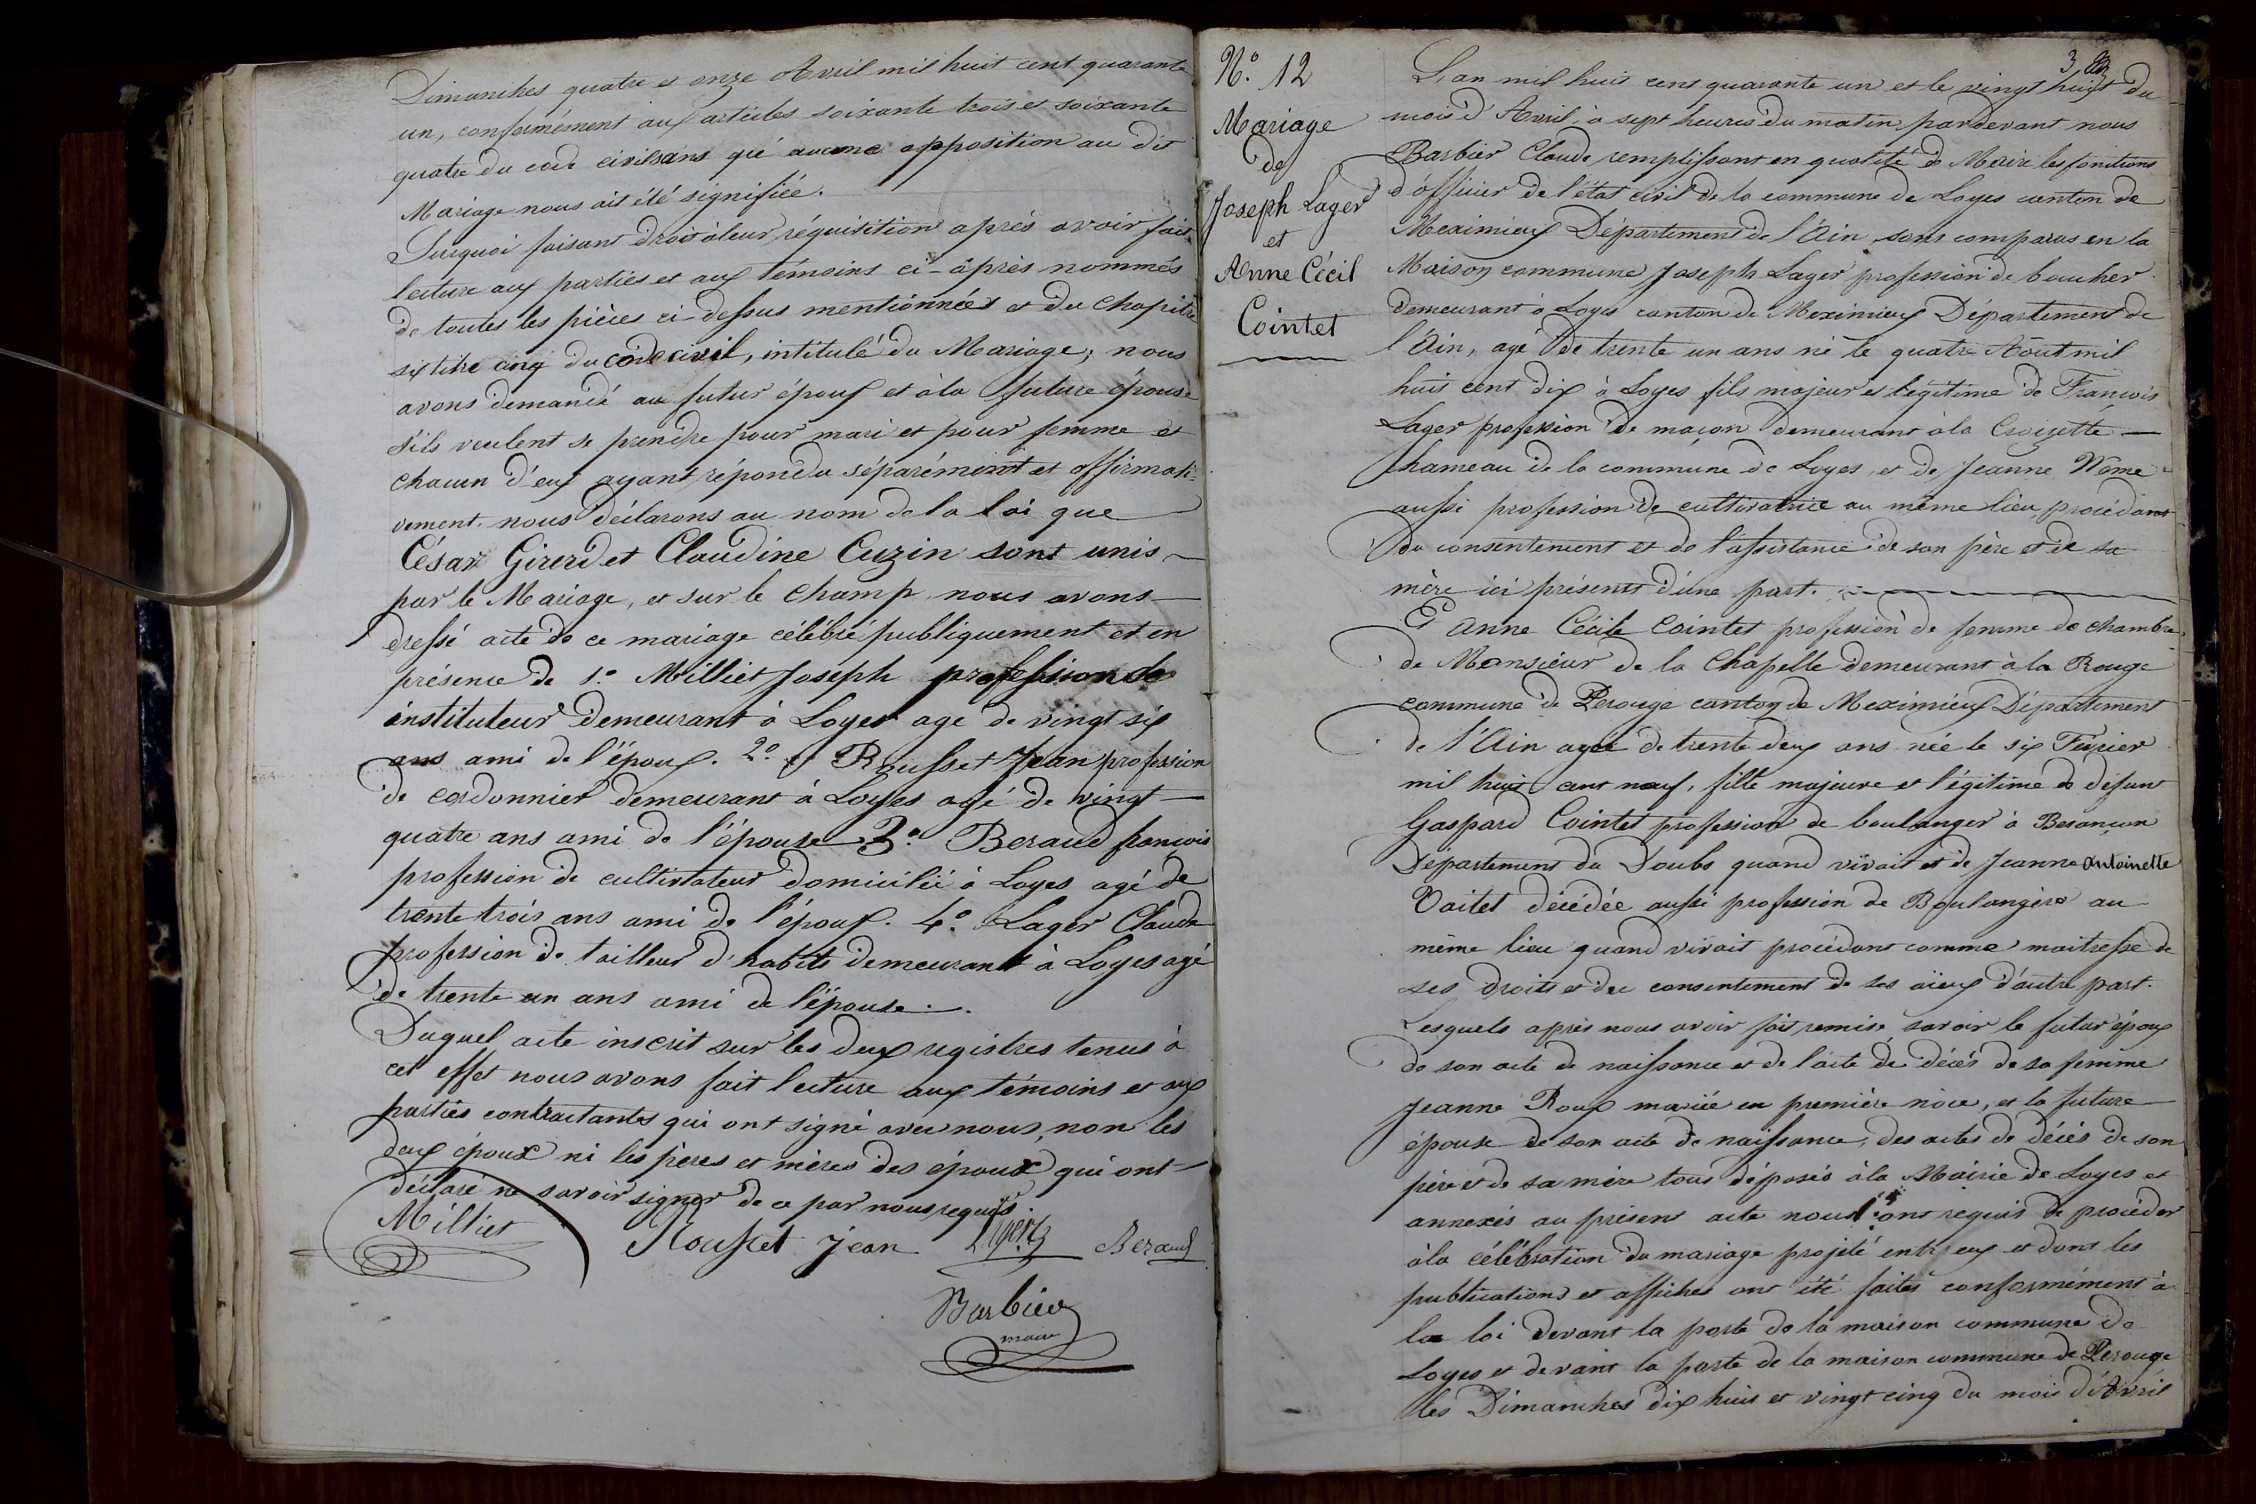 Dimanches quatre et onze Avril mil huit cent quarante
un, conformément aux articles soixante trois et soixante
quatre du code civil sans qu'é aucune opposition au dit
Mariage nous ait été signifiée.
Surquoi faisant droit à leur réquisition après avoir fait
lecture aux parties et aux témoins ci-après nommés
de toutes les pièces ci-dessus mentionnées et du chapitre
six titre cinq du code civil, intitulé du Mariage; nous
avons demandé au futur époux et à la future épouse
s'ils veulent se prendre pour mari et pour femme et
chacun d'eux ayant répondu séparément et affirmati-
vement. nous déclarons au nom de la loi que
César Girerd et Claudine Cuzin sont unis
par le Mariage, et sur le champ nous avons
dressé acte de ce mariage célébré publiquement et en
présence de 1.º Milliet Joseph profession de
instituteur demeurant à Loyes age de vingt six
ans ami de l'époux. 2.º Rousset Jean profession
de cordonnier demeurant à Loyes agé de vingt
quatre ans ami de l'épouse 3.º Beraud françois
profession de cultivateur domicilié à Loyes agé de
trente trois ans ami de l'époux. 4.º Lager Claude
profession de tailleur d'habits demeurant à Loyes agé
de trente un ans ami de l'épouse.
Duquel acte inscrit sur les deux registres tenus à
cet effet nous avons fait lecture aux témoins et aux
parties contractantes qui ont signé avec nous, non les
deux époux ni les pères et mères des époux qui ont
déclaré ne savoir signer de ce par nous requis
Milliet Rousset Jean Beraud
Barbier
maire
3
N.º 12
Mariage
de
Joseph Lager
et
Anne Cécil
Cointet
L'an mil huit cent quarante un et le vingt huit du
mois d'Avril, à sept heures du matin pardevant nous
Barbier Claude remplissant en qualité de Maire les fonctions
d'officier de l'état civil de la commune de Loyes canton de
Meximieux Département de l'Ain, sont comparus en la
Maison commune Joseph Lager profession de boucher
demeurant à Loyes canton de Meximieux Département de
l'Ain, agé de trente un ans né le quatre Août mil
huit cent dix à Loyes fils majeur et légitime de François
Lager profession de maçon demeurant à la Croizette
hameau de la commune de Loyes, et de Jeanne
aussi profession de cultivatrice au même lieu procédant
du consentement et de l'assistance de son père et de sa
mère ici présents d'une part.
Et Anne Cécile Cointet profession de femme de chambre
de Monsieur de la Chapelle demeurant à la Rouge
commune de Perouge canton de Meximieux Département
de l'Ain agée de trente deux ans née le six Février
mil huit cent neuf, fille majeure et légitime de defunt
Gaspard Cointet profession de boulanger à Besançon
Département du Doubs quand vivait et de Jeanne Antoinette
Voitet décédée aussi profession de Boulangère au
même lieu quand vivait procédant comme maitresse de
ses droits et du consentement de ses aïeux d'autre part.
Lesquels après nous avoir fait remise savoir le futur époux
de son acte de naissance et de l'acte de décès de sa femme
Jeanne Roux mariée en première noce, et la future
épouse de son acte de naissance, des actes de décès de son
père et de sa mère tous déposés à la Mairie de Loyes et
annexés au présent acte nous ont requis de procéder
à la célébration du mariage projeté entr'eux et dont les
publications et affiches ont été faites conformément à
la loi devant la porte de la maison commune de
Loyes et devant la porte de la maison commune de Perouge
les Dimanches dix huit et vingt cinq du mois d'Avril